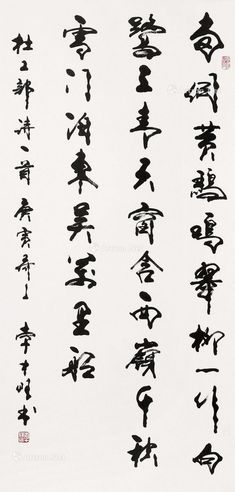 两個黄鹂鸣翠柳一行白
鹭上青天窗含西嶺千秋
雪门泊東吴萬里船
杜工部诗一首庚寅书